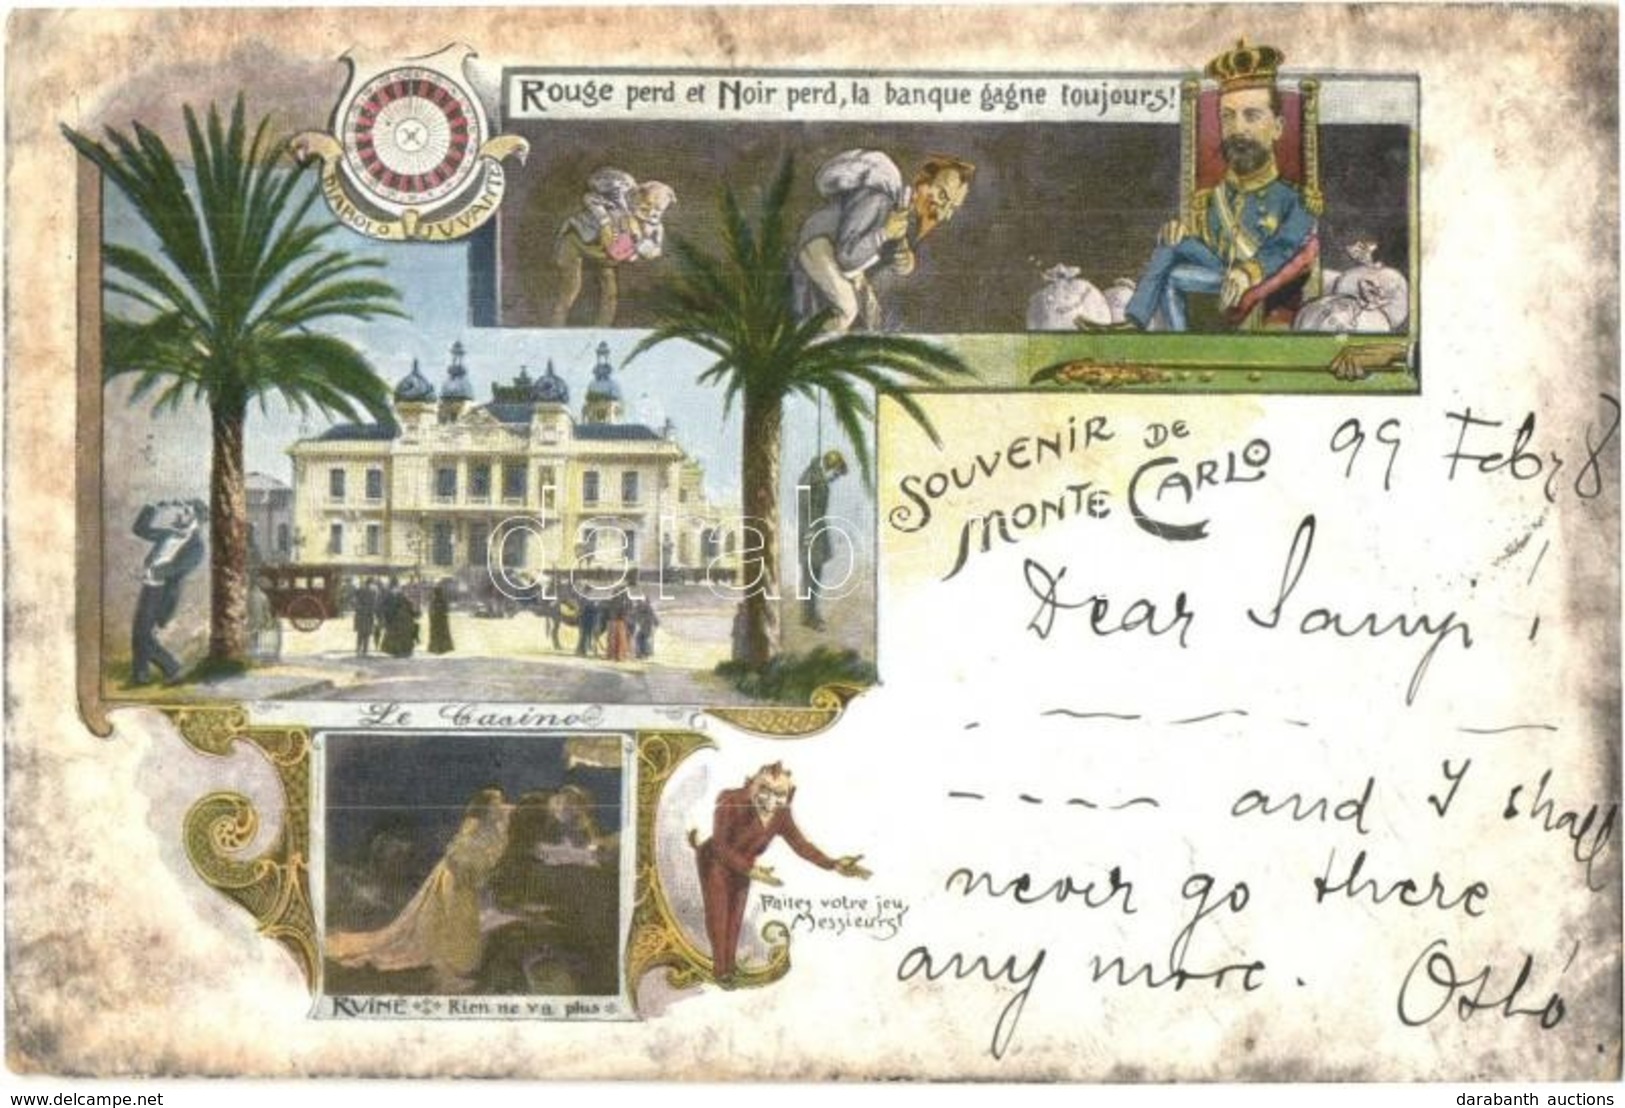 Rouge perd et Noir perd, la banque gagne toujours!
DIABOLO JUVANTE
SOUVENIR DE
MONTE CARLO
99 Febr 8
Dear
and I shall
never go there
any more.
Le Casino
Faites votre jeu,
Messieurs!
RUINE Rien ne va plus
darab
www.delcampe.net
darabanth auctions